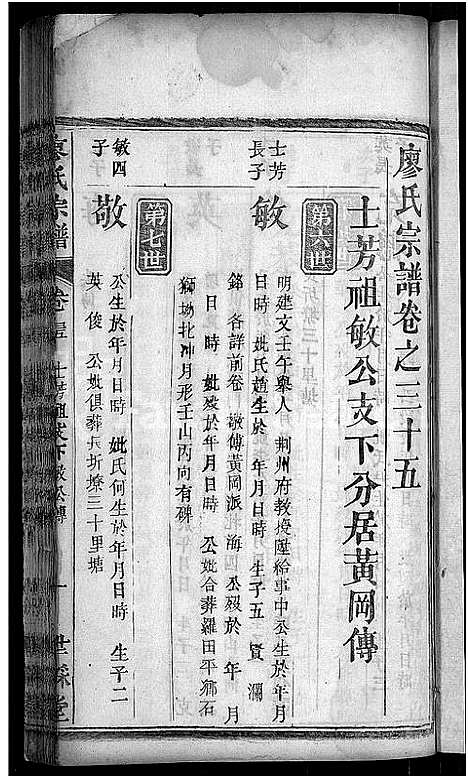 廖氏宗譜卷之三十五
士芳祖敏公支下分居黃岡傳
第六世
士芳長子
敏
明建文壬午舉人 荆州府教授陞給事中公生於年月
日時 妣氏趙生於 年月日時 生子五 賢 瀾
銘 各詳前卷 敬傳黃岡派 海四 公歿於 年 月
日 時 妣歿於年月日時 公妣合葬羅田平獅石
獅坳北冲月形壬山丙向有碑
第七世
敏四子
敬
公生於年月日時 妣氏何生於年月日時 生子二
英 俊 公妣俱葬兵圻墩三十里塘
氏宗譜
卷三十五 士芳祖支下敏公傳 一
世綵堂